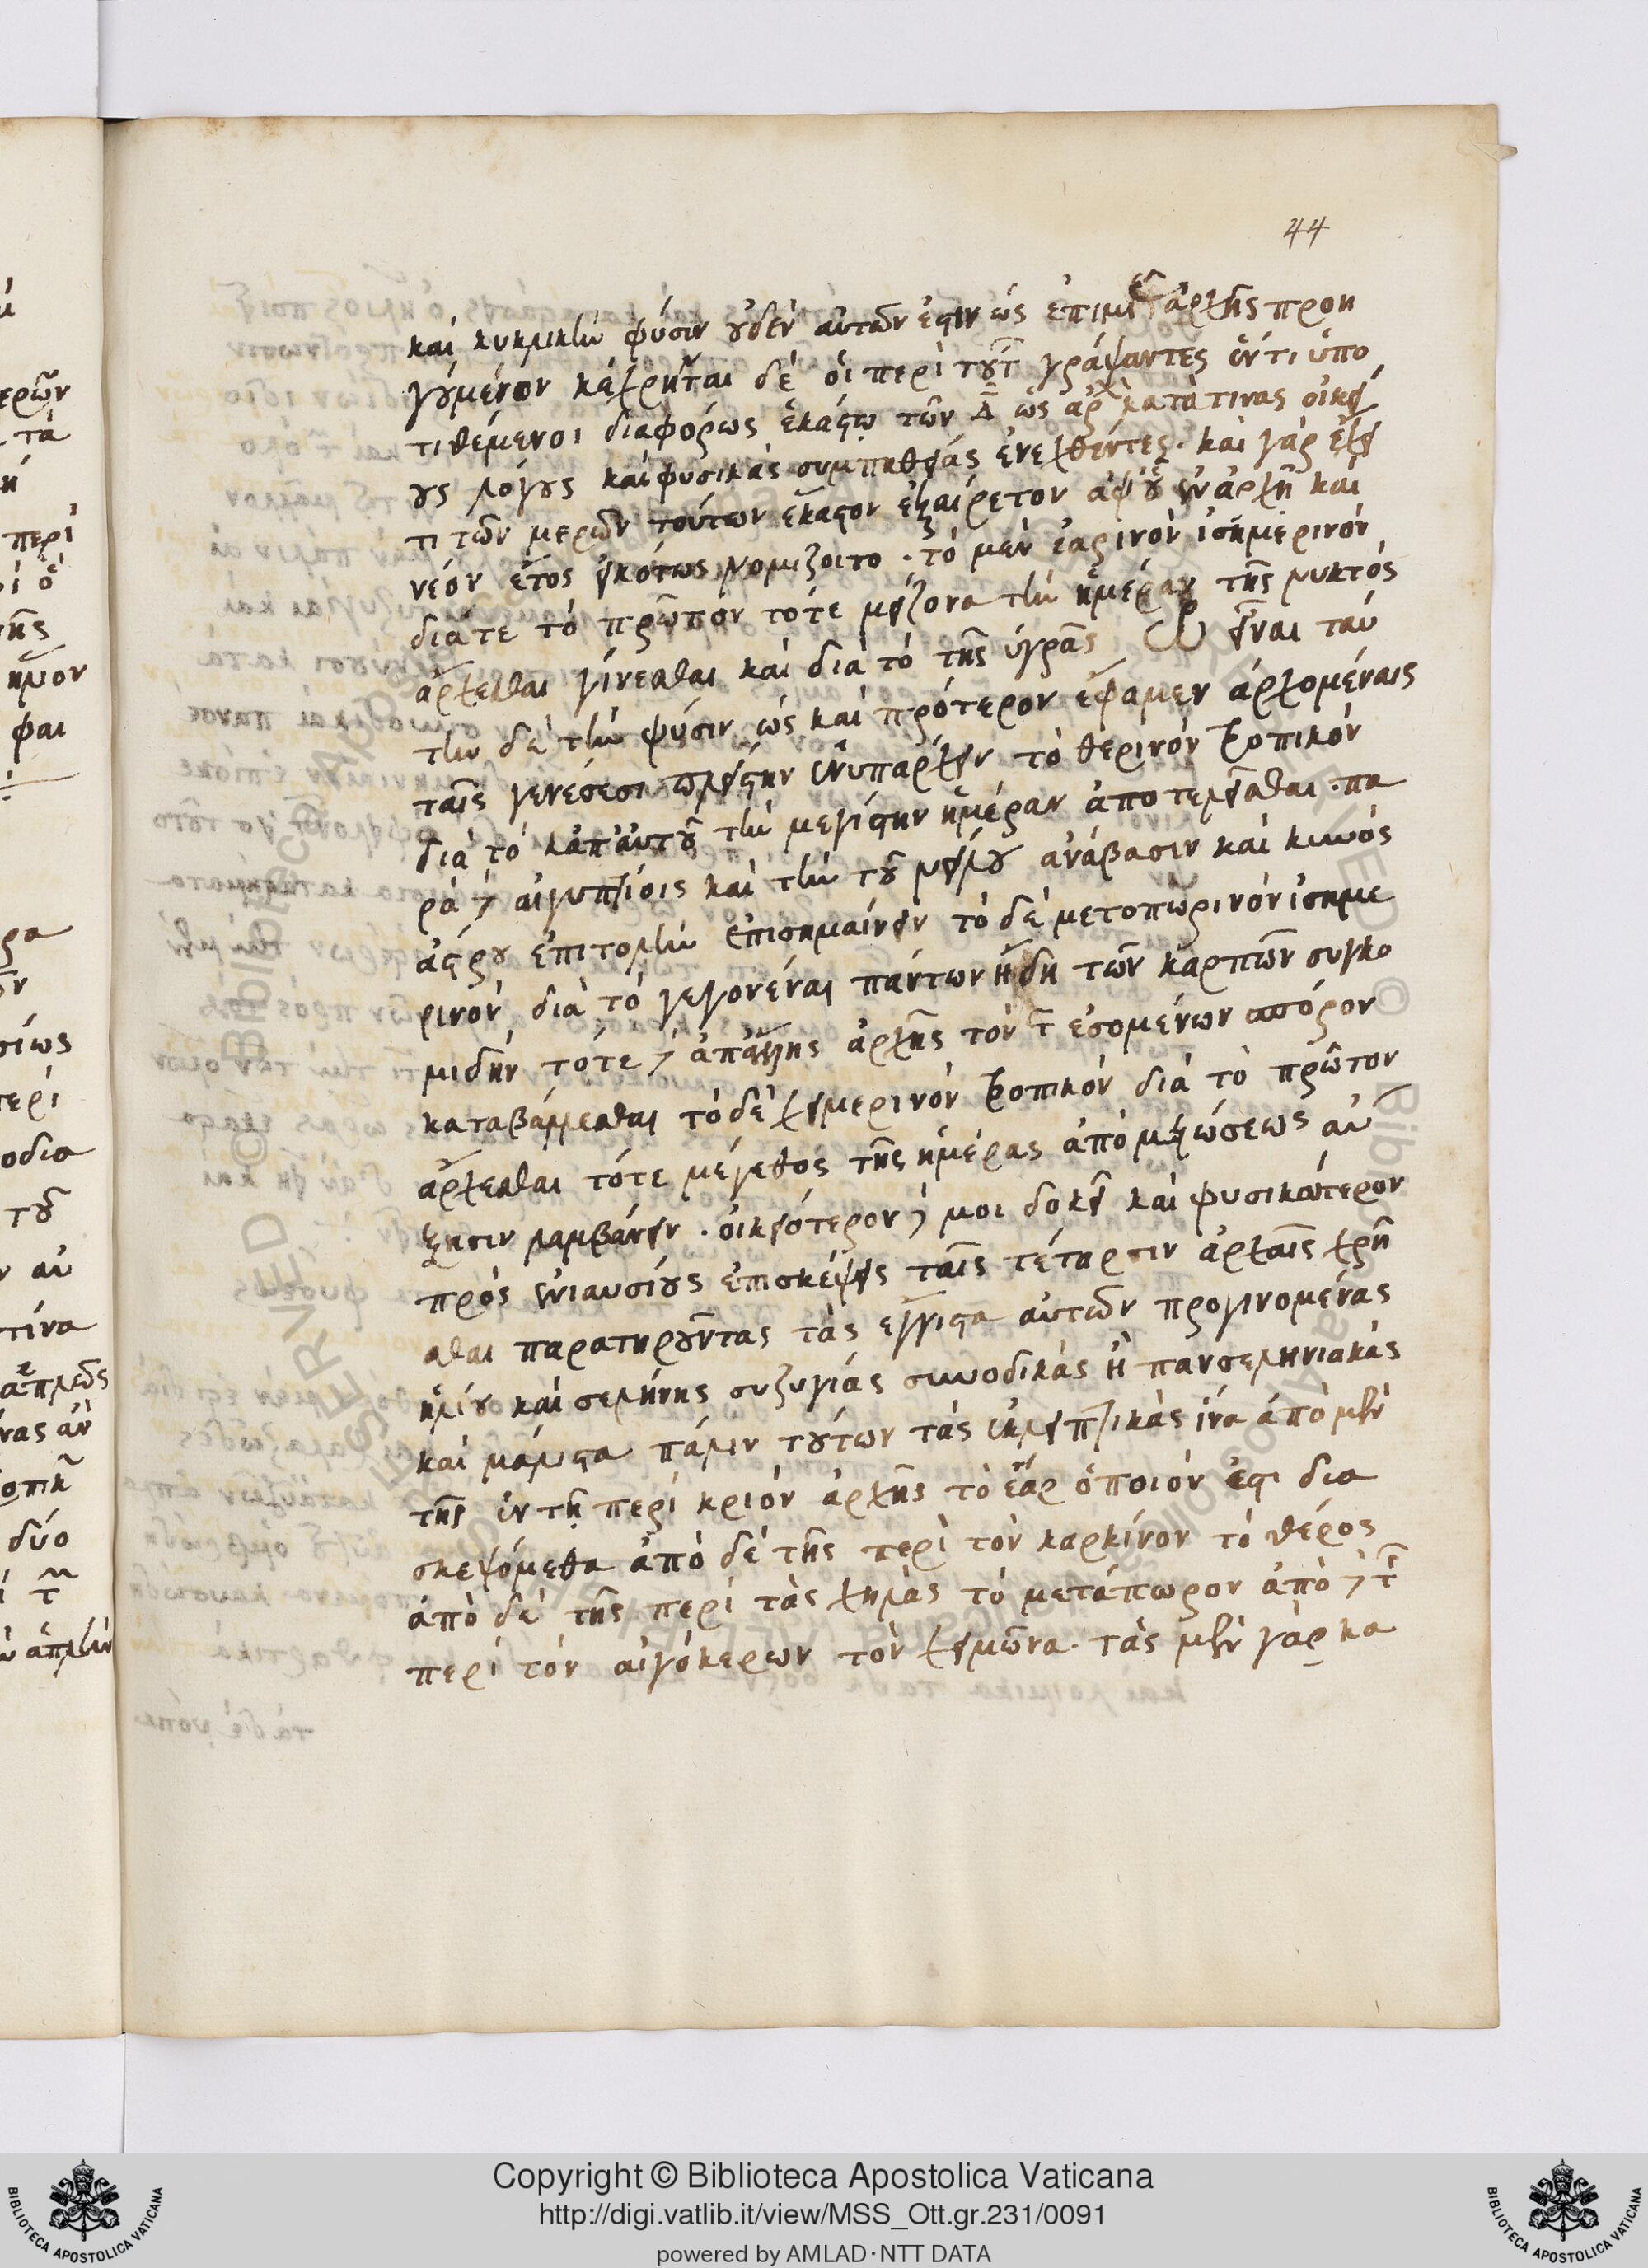 44
καὶ κυκλικὴν φύσιν οὐδὲν αὐτῶν ἐστιν ὡς ἐπὶ μιᾶς ἀρχῆς προη
γουμένων κέχρηνται δὲ οἱ περὶ τούτ γράψαντες ἕν τι ὑπο
τιθέμενοι διαφόρως ἑκάστῳ τῶν Δ ὡς ἀρχ κατά τινας οἰκεί
ους λόγους καὶ φυσικὰς συμπαθείας ἐνεχθέντες. καὶ γὰρ ἔχει
τι τῶν μερῶν τούτων ἕκαστον ἐξαίρετον ἀφ' οὗ ἂν ἀρχὴ καὶ
νέον ἔτος εἰκότως νομίζοιτο. τὸ μὲν ἐαρινὸν ἰσημερινὸν
διά τε τὸ πρῶτον τότε μείζονα τὴν ἡμέραν τῆς νυκτὸς
ἄρχεσθαι γίνεσθαι καὶ διὰ τὸ τῆς ὑγρᾶς εἶναι ταύ
την δὲ τὴν φύσιν ὡς καὶ πρότερον ἔφαμεν ἀρχομέναις
ταῖς γενέσεσι πλείστην ἐνυπάρχειν τὸ θερινὸν τροπικὸν
διὰ τὸ κατ' αὐτοῦ τὴν μεγίστην ἡμέραν ἀποτελεῖσθαι. πα
ρὰ δὲ αἰγυπτίοις καὶ τὴν τοῦ νείλου ἀνάβασιν καὶ κυνὸς
ἄστρου ἐπιτολὴν ἐπισημαίνειν τὸ δὲ μετοπωρινὸν ἰσημε
ρινὸν διὰ τὸ γεγονέναι πάντων ἤδη τῶν καρπῶν συγκο
μιδὴν τότε δὲ ἀπ' ἄλλης ἀρχῆς τὸν τ ἐσομένων σπόρον
καταβάλλεσθαι τὸ δὲ χειμερινὸν τροπικὸν διὰ τὸ πρῶτον
ἄρχεσθαι τότε μέγεθος τῆς ἡμέρας ἀπὸ μειώσεως αὔ
ξησιν λαμβάνειν. οἰκειότερον δέ μοι δοκεῖ καὶ φυσικώτερον
πρὸς ἐνιαυσίους ἐπισκέψεις ταῖς τέταρσιν ἀρχαῖς χρῆ
σθαι παρατηροῦντας τὰς ἔγγιστα αὐτῶν προγινομένας
ἡλίου καὶ σελήνης συζυγίας συνοδικὰς ἢ πανσεληνιακὰς
καὶ μάλιστα πάλιν τούτων τὰς ἐκλειπτικὰς ἵνα ἀπὸ μὲν
τῆς ἐν τῇ περὶ κριὸν ἀρχῆς τὸ ἔαρ ὁποῖον ἔσται δια
σκεψόμεθα ἀπὸ δὲ τῆς περὶ τὸν καρκίνον τὸ θέρος
ἀπὸ δὲ τῆς περὶ τὰς χηλὰς τὸ μετόπωρον ἀπὸ δὲ τ
περὶ τὸν αἰγόκερων τὸν χειμῶνα. τὰς μὲν γὰρ κα
Copyright © Biblioteca Apostolica Vaticana
http://digi.vatlib.it/view/MSS_Ott.gr.231/0091
powered by AMLAD·NTT DATA
BIBLIOTECA APOSTOLICA VATICANA
BIBLIOTECA APOSTOLICA VATICANA